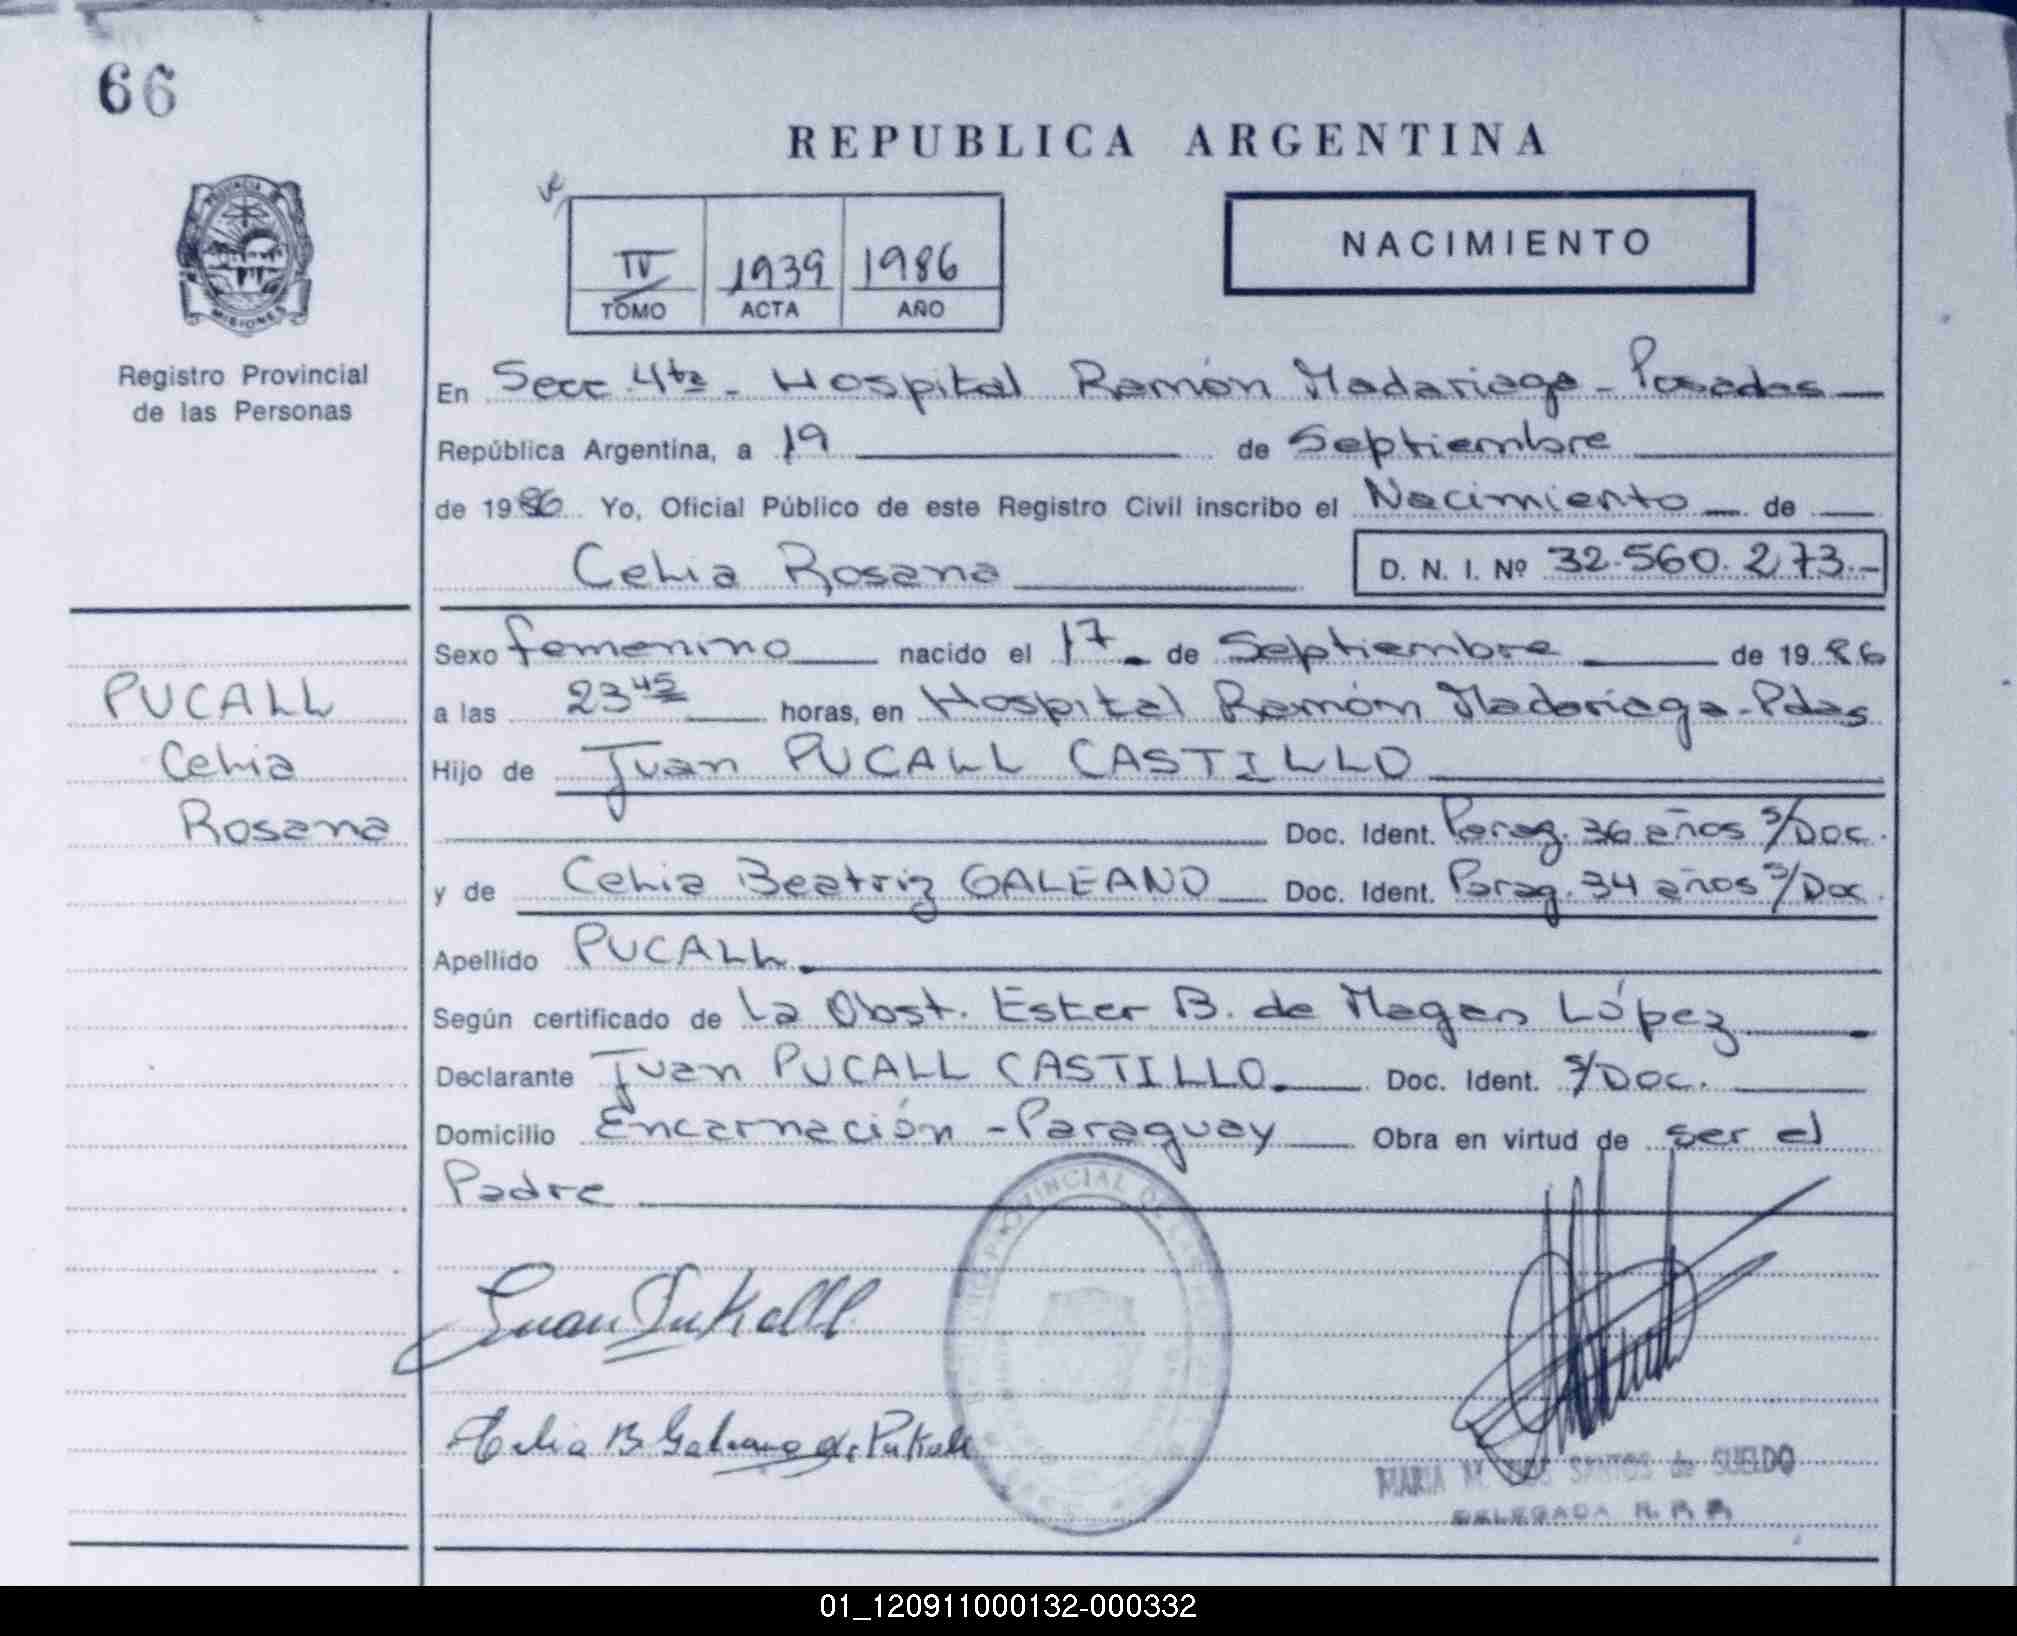 66
REPUBLICA ARGENTINA
PROVINCIA DE MISIONES
IV 1939 1986
TOMO ACTA AÑO
NACIMIENTO
Registro Provincial
de las Personas
En Secc 4ta - Hospital Ramón Madariaga - Posadas
República Argentina, a 19 de Septiembre
de 1986 Yo, Oficial Público de este Registro Civil inscribo el Nacimiento de
Celia Rosana D. N. I. Nº 32.560.273.-
Sexo femenino nacido el 17 de Septiembre de 1986
PUCALL
Celia
Rosana
a las 23 45 horas, en Hospital Ramón Madariaga - Pdas
Hijo de Juan PUCALL CASTILLO
Doc. Ident. Parag. 36 años s/Doc.
y de Celia Beatriz GALEANO Doc. Ident. Parag. 34 años s/Doc.
Apellido PUCALL.
Según certificado de la Obst. Ester B. de Magan López
Declarante Juan PUCALL CASTILLO. Doc. Ident. s/Doc.
Domicilio Encarnación - Paraguay Obra en virtud de ser el
Padre
Juan Pukall
Celia B Galeano de Pukall
MARIA M. DOS SANTOS de SUELDO
DELEGADA R. P. P.
01_120911000132-000332